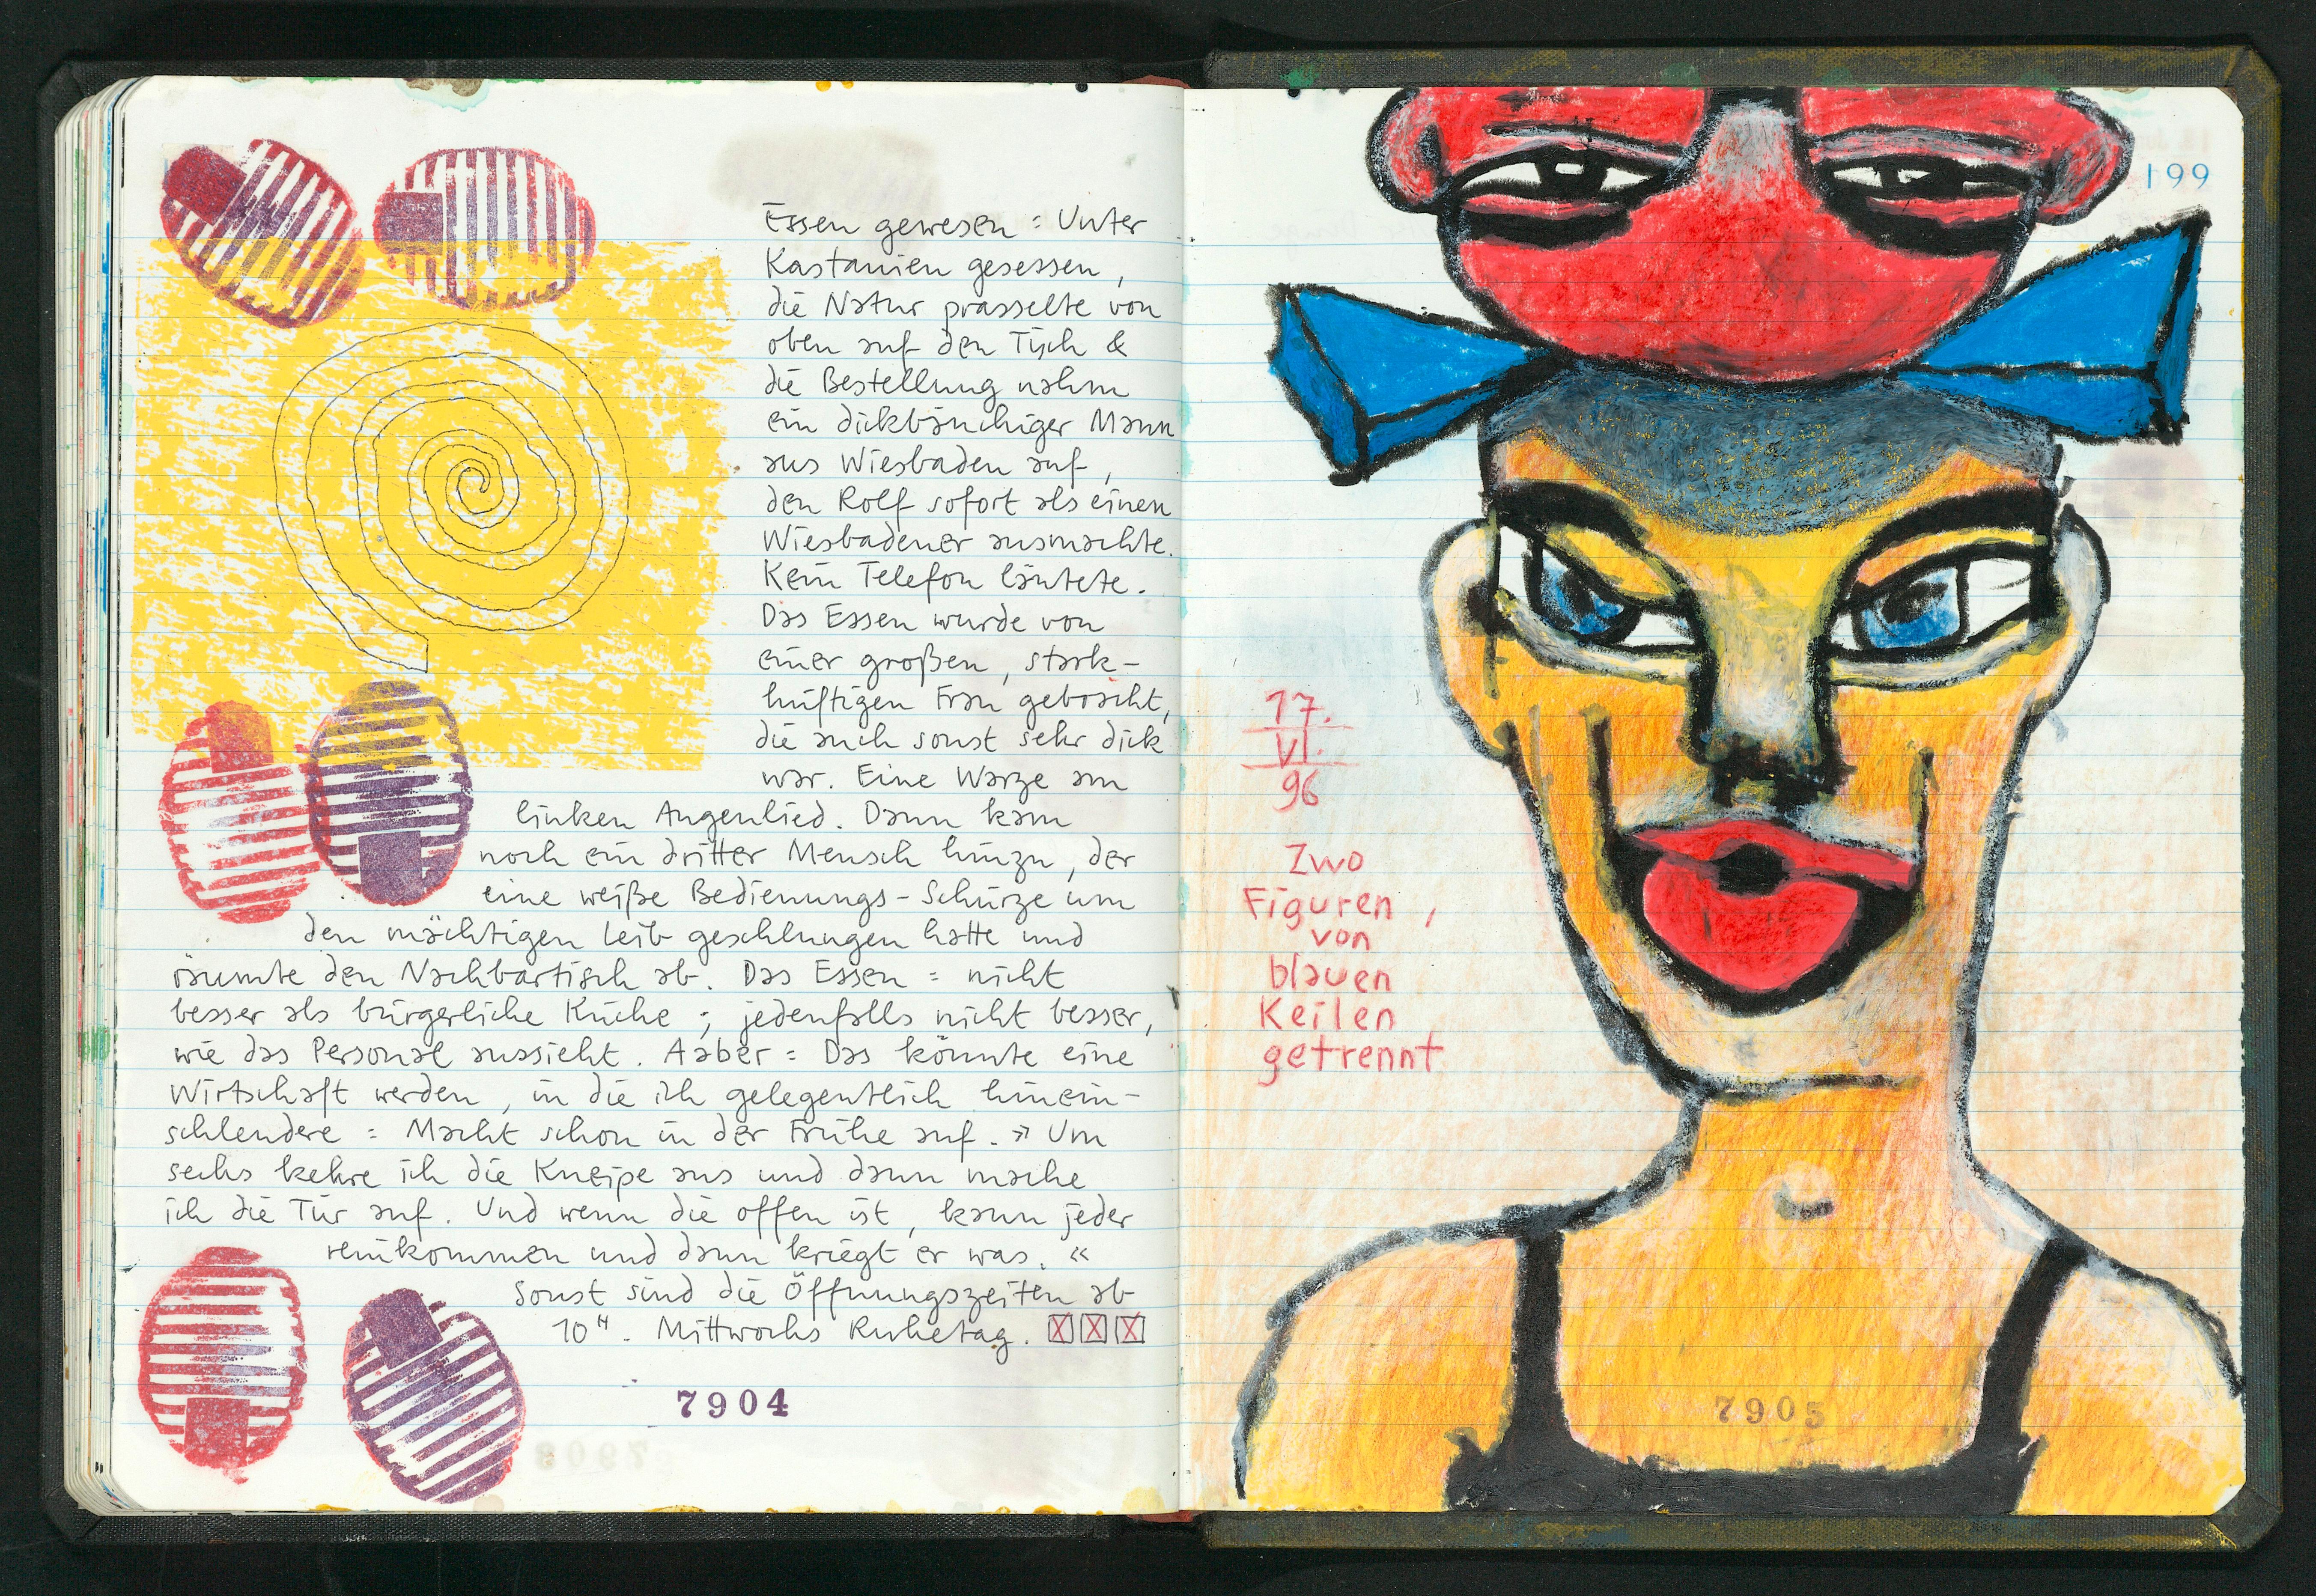 Essen gewesen : Unter
Kastanien gesessen ,
die Natur prasselte von
oben auf den Tisch &
die Bestellung nahm
ein dickbäuchiger Mann
aus Wiesbaden auf ,
den Rolf sofort als einen
Wiesbadener ausmachte.
Kein Telefon läutete .
Das Essen wurde von
einer großen , stark-
hüftigen Frau gebracht,
die auch sonst sehr dick
war. Eine Warze am
linken Augenlied. Dann kam
noch ein dritter Mensch hinzu , der
eine weiße Bedienungs-Schürze um
den mächtigen Leib geschlungen hatte und
räumte den Nachbartisch ab. Das Essen = nicht
besser als bürgerliche Küche ; jedenfalls nicht besser,
wie das Personal aussieht. Aaber : Das könnte eine
Wirtschaft werden , in die ich gelegentlich hinein-
schlendere : Macht schon in der Frühe auf. » Um
sechs kehre ich die Kneipe aus und dann mache
ich die Tür auf. Und wenn die offen ist , kann jeder
reinkommen und dann kriegt er was. «
Sonst sind die Öffnungszeiten ab
10ʰ. Mittwochs Ruhetag. XXX
7904
199
17.
VI.
96
Zwo
Figuren ,
von
blauen
Keilen
getrennt
7905